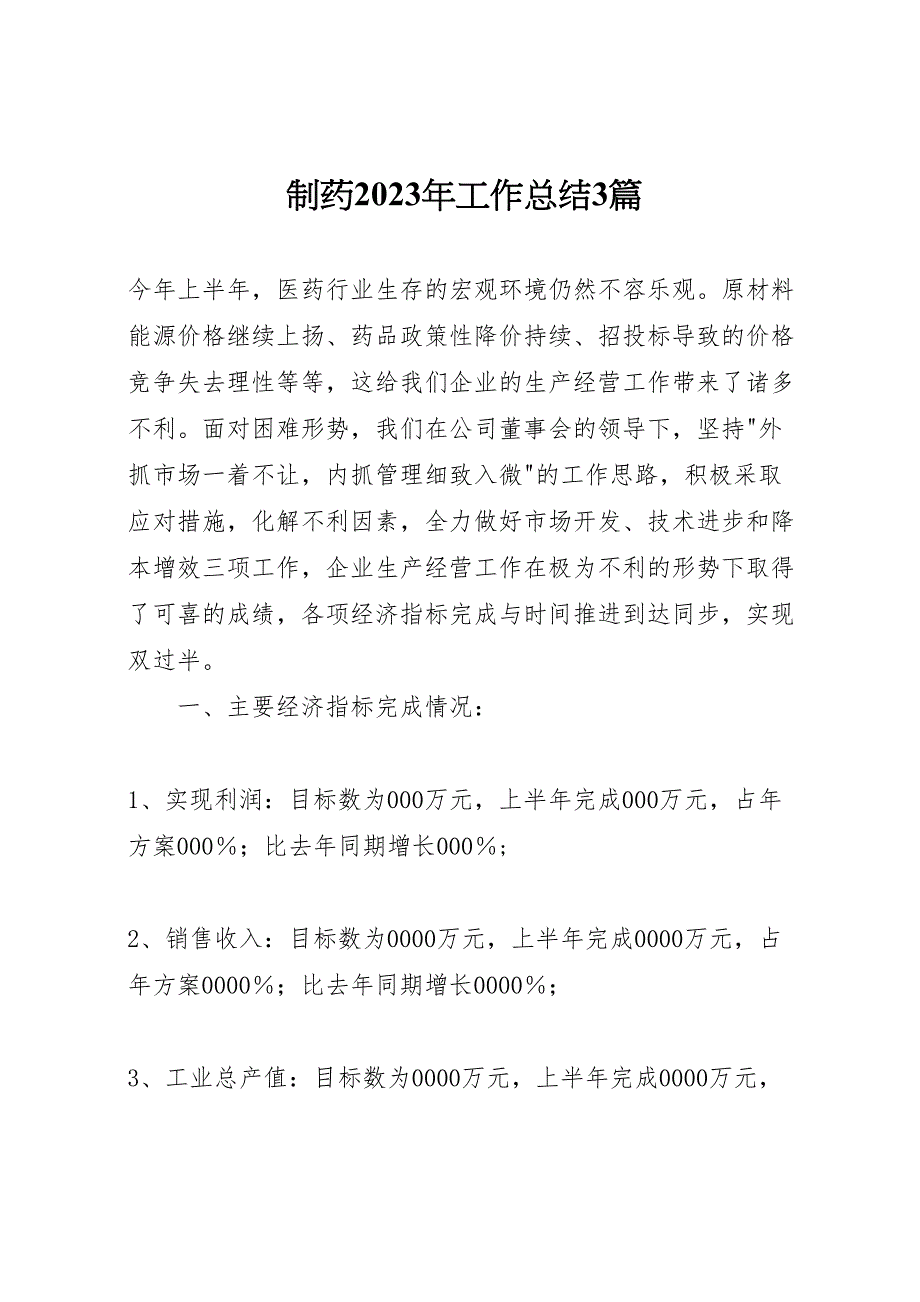 制药2023年工作总结3篇
今年上半年，医药行业生存的宏观环境仍然不容乐观。原材料
能源价格继续上扬、药品政策性降价持续、招投标导致的价格
竞争失去理性等等，这给我们企业的生产经营工作带来了诸多
不利。面对困难形势，我们在公司董事会的领导下，坚持"外
抓市场一着不让，内抓管理细致入微"的工作思路，积极采取
应对措施，化解不利因素，全力做好市场开发、技术进步和降
本增效三项工作，企业生产经营工作在极为不利的形势下取得
了可喜的成绩，各项经济指标完成与时间推进到达同步，实现
双过半。
一、主要经济指标完成情况：
1、实现利润：目标数为000万元，上半年完成000万元，占年
方案000％；比去年同期增长000％;
2、销售收入：目标数为0000万元，上半年完成0000万元，占
年方案0000％；比去年同期增长0000％；
3、工业总产值：目标数为0000万元，上半年完成0000万元，